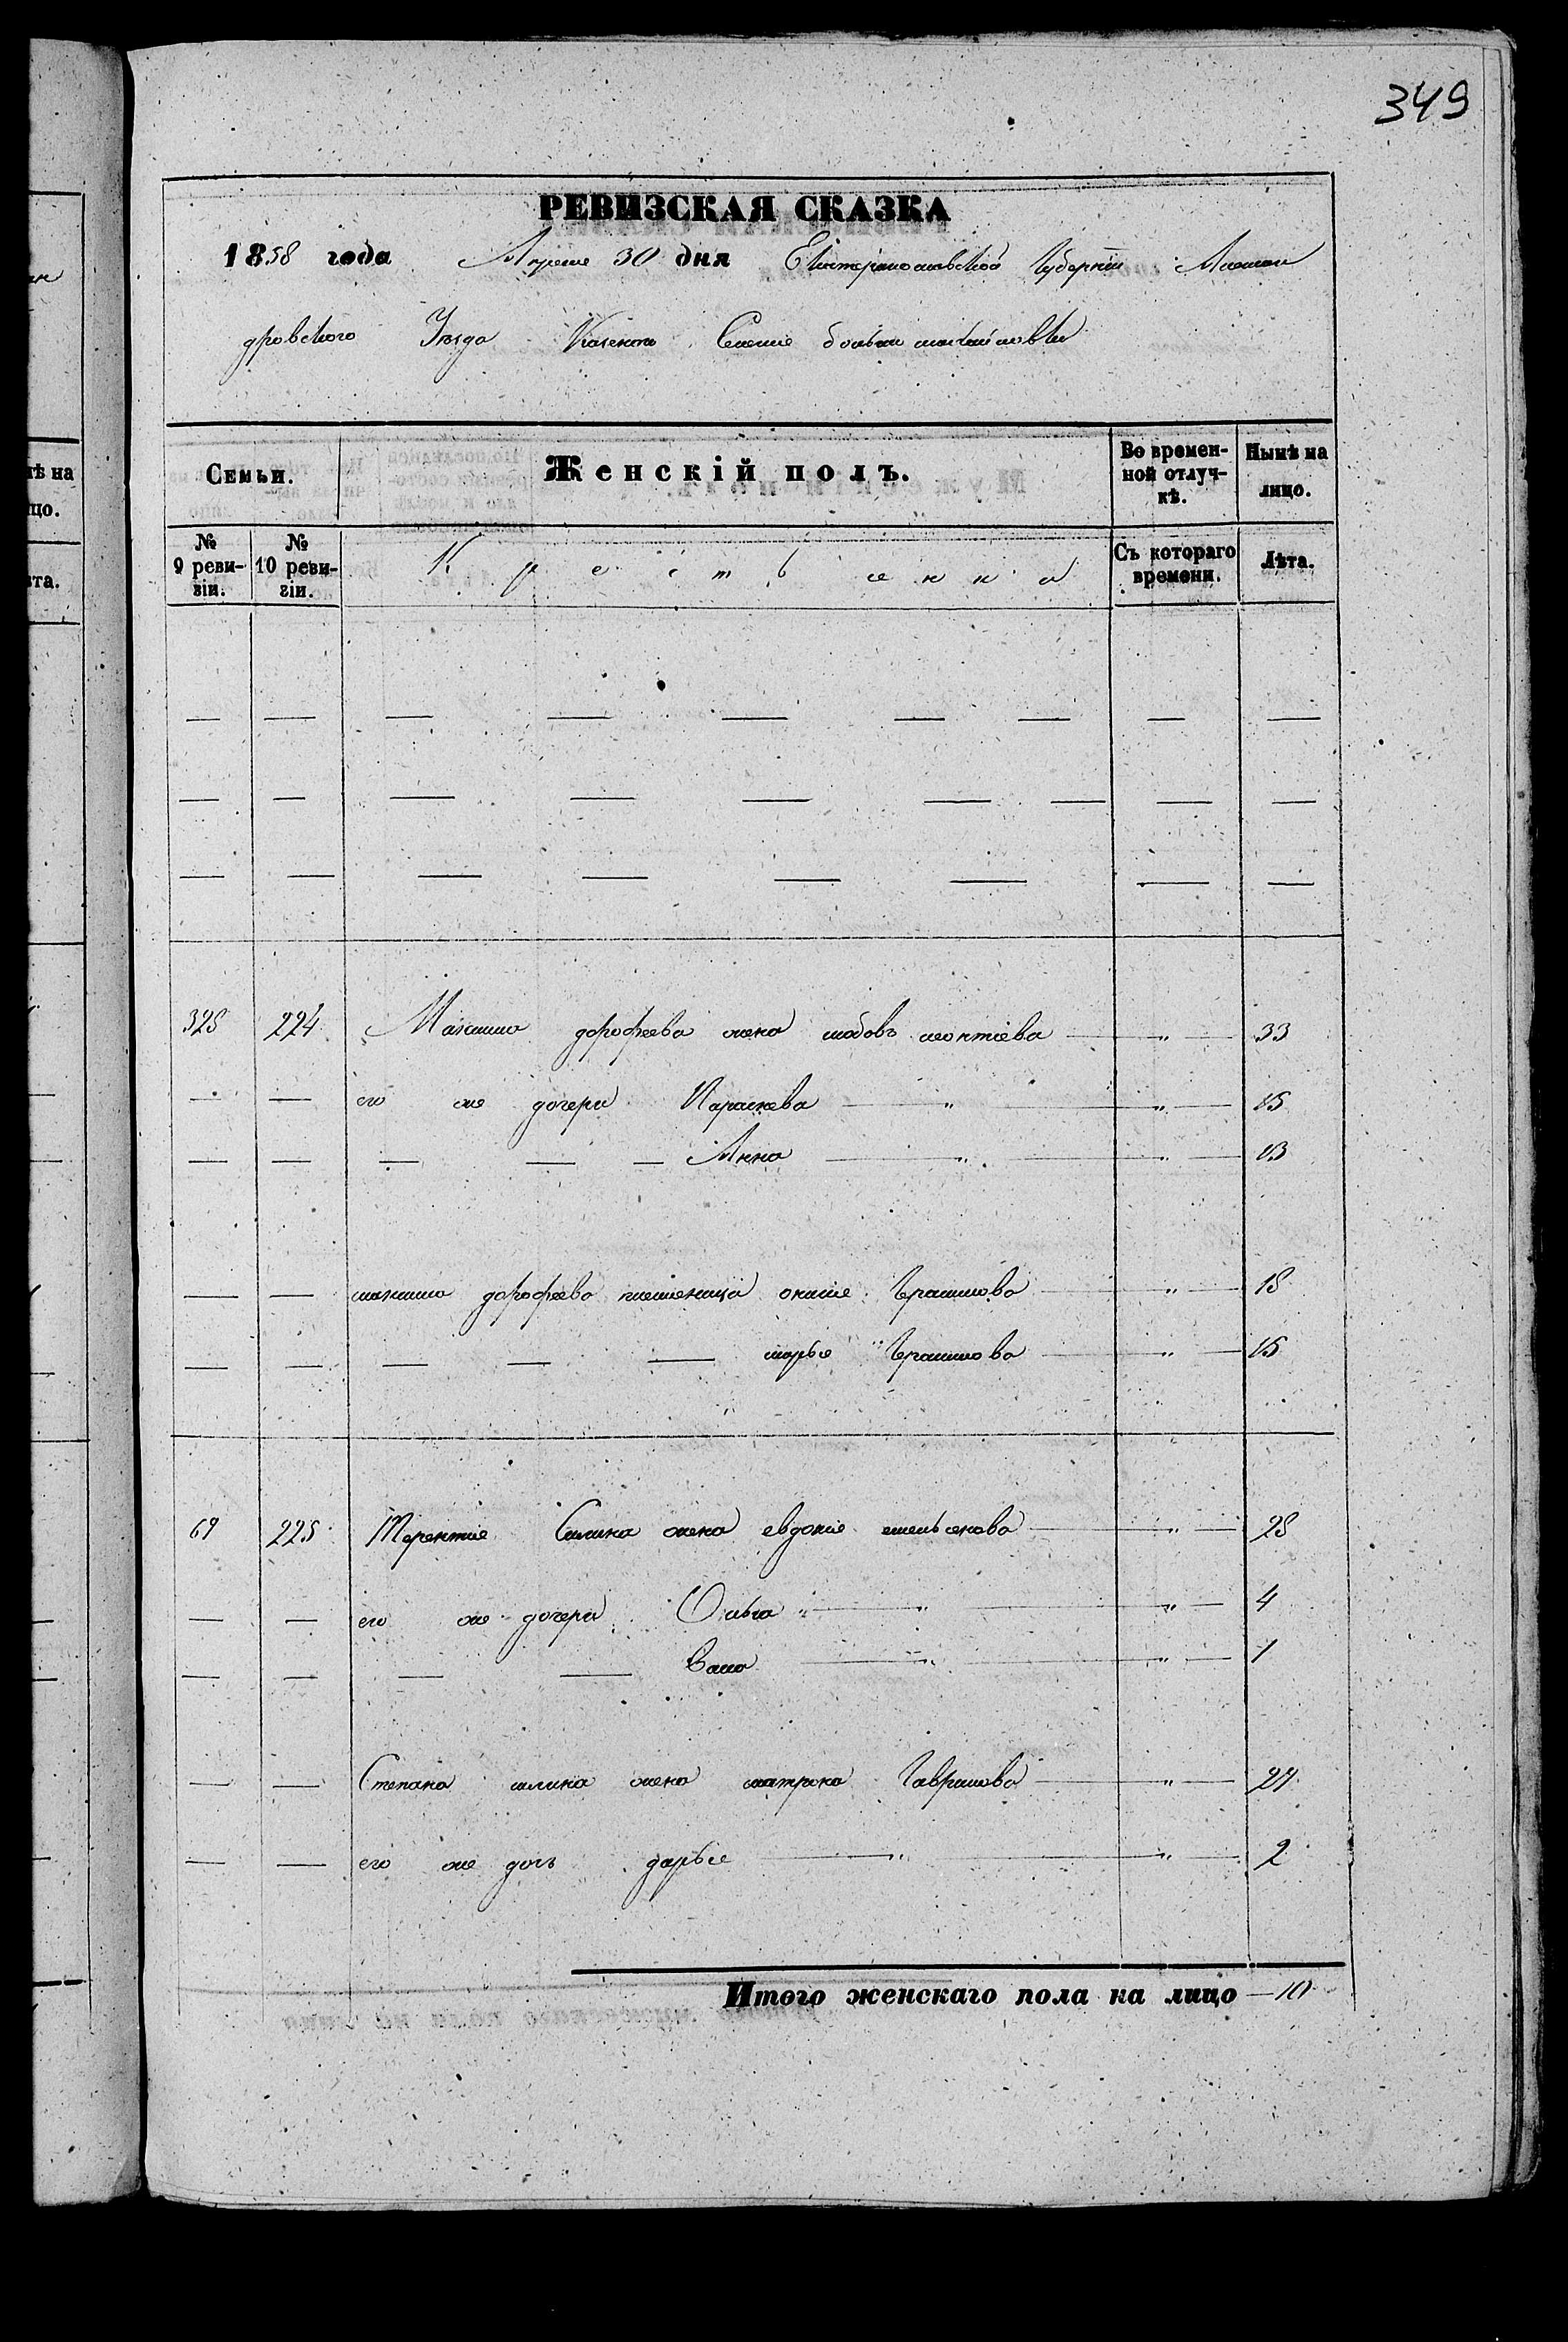 349
РЕВИЗСКАЯ СКАЗКА
1858 года Апреля 30 дня Екатеринославской Губернiи Алексан
дровского Уезда Казенно Селенiе большо михайловки
Семьи. Женскій полъ. Во времен-
ной отлуч-
кѣ. Нынѣ на
лицо.
№
9 реви-
зіи. №
10 реви-
зіи. К р е с т ь я н к а Съ котораго
времени. Лѣта.
325 224 Максима дорофеева жена любовь леонтiева — " — 33
его же дочери Параскева — " — " — 15
— — — — — Анна — " — " — 13
— — максима дорофеева племеница Ерашмова — " — 18
— — — — — марья Ерашмова — " — 15
69 225 Терентiя Силина жена евдокiя емельянова — " — 28
— — его же дочери Ольга — " — " — 4
— — — — — " — " — 1
— — Степана силина жена матрона Гаврилова — " — 27
— — его же дочь дарья — " — " — 2
Итого женскаго пола на лицо — 10